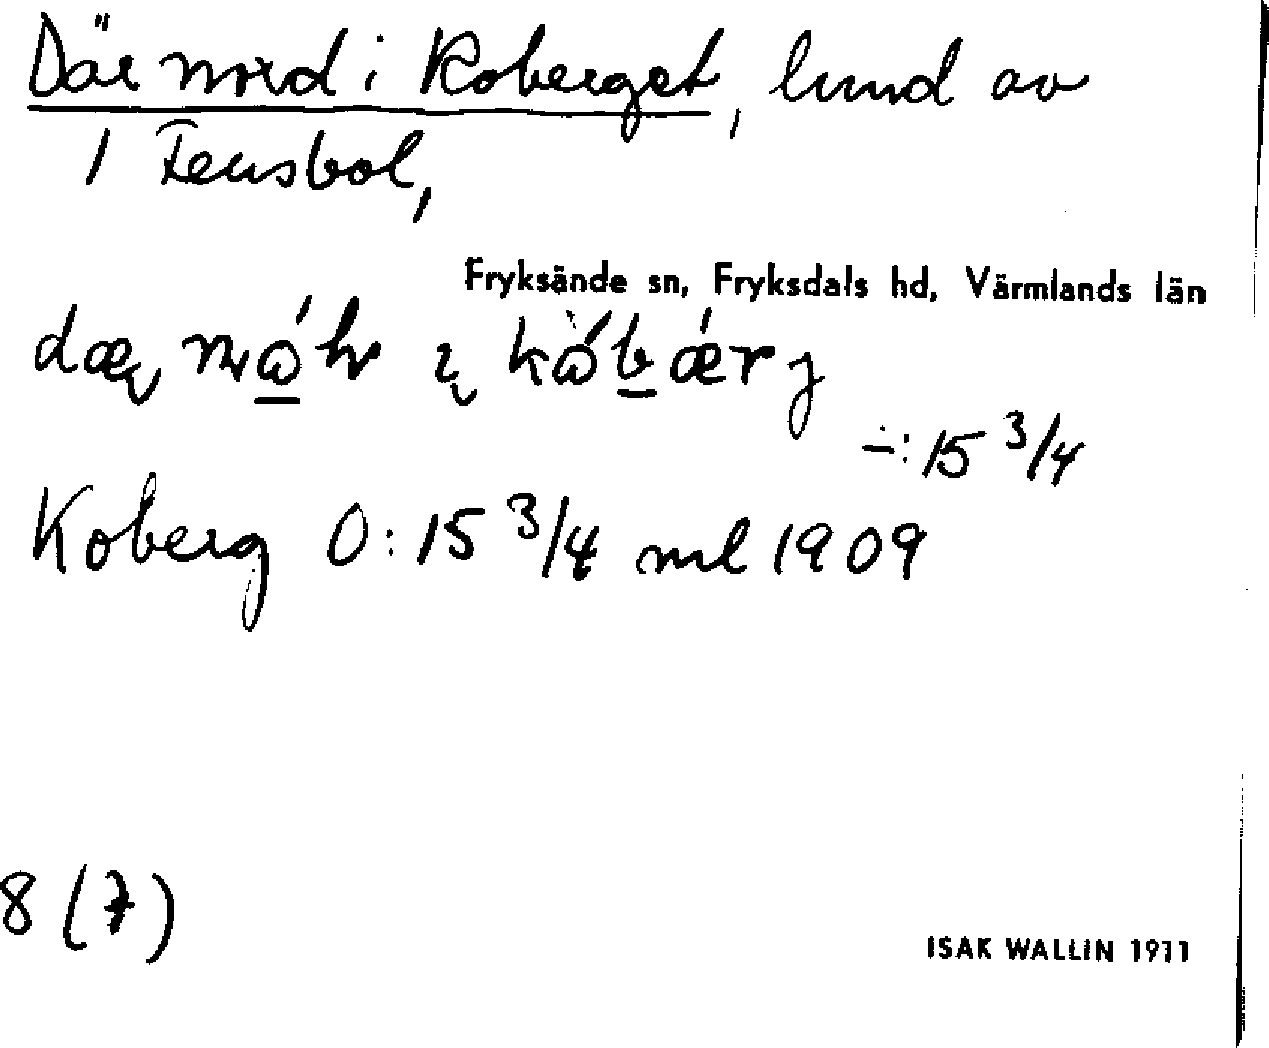 Där nord i Koberget, lund av
1 Fensbol,
Fryksände sn, Fryksdals hd, Värmlands län
÷: 15 3/4
Koberg O: 15 3/4 ml 1909
8 (7)
ISAK WALLIN 1911